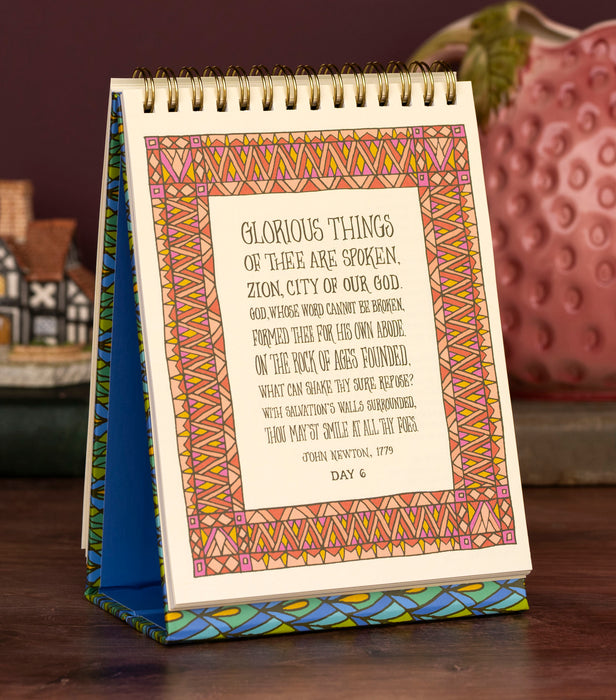 GLORIOUS THINGS
OF THEE ARE SPOKEN,
ZION, CITY OF OUR GOD.
GOD, WHOSE WORD CANNOT BE BROKEN,
FORMED THEE FOR HIS OWN ABODE.
ON THE ROCK OF AGES FOUNDED,
WHAT CAN SHAKE THY SURE REPOSE?
WITH SALVATION'S WALLS SURROUNDED,
THOU MAY'ST SMILE AT ALL THY FOES.
JOHN NEWTON, 1779
DAY 6